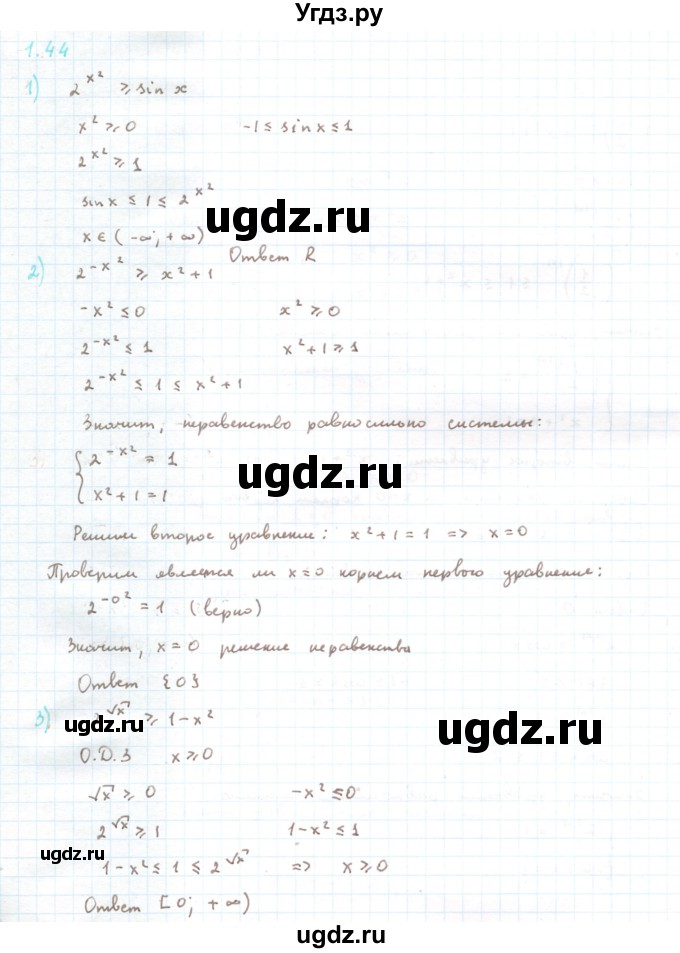 Угдз.ру
1.44
1) 2^x² ⩾ sin x
x² ⩾ 0   -1 ≤ sin x ≤ 1
2^x² ⩾ 1
sin x ≤ 1 ≤ 2^x²
ugdz.ru
x ∈ (-∞; +∞)
Ответ R
2) 2^-x² ⩾ x² + 1
-x² ≤ 0   x² ⩾ 0
2^-x² ≤ 1   x² + 1 ⩾ 1
2^-x² ≤ 1 ≤ x² + 1
Значит, неравенство равносильно системы:
{ 2^-x² = 1
x² + 1 = 1
ugdz.ru
Решим второе уравнение: x² + 1 = 1 => x = 0
Проверим является ли x = 0 корнем первого уравнения:
2^-0² = 1 (верно)
Значит, x = 0 решение неравенства
Ответ {0}
3) √x ⩾ 1 - x²
ugdz.ru
ugdz.ru
О.D.З x ⩾ 0
√x ⩾ 0   -x² ≤ 0
2^√x ⩾ 1   1 - x² ≤ 1
ugdz.ru
1 - x² ≤ 1 ≤ 2^√x => x ⩾ 0
Ответ [0; +∞)
ugdz.ru